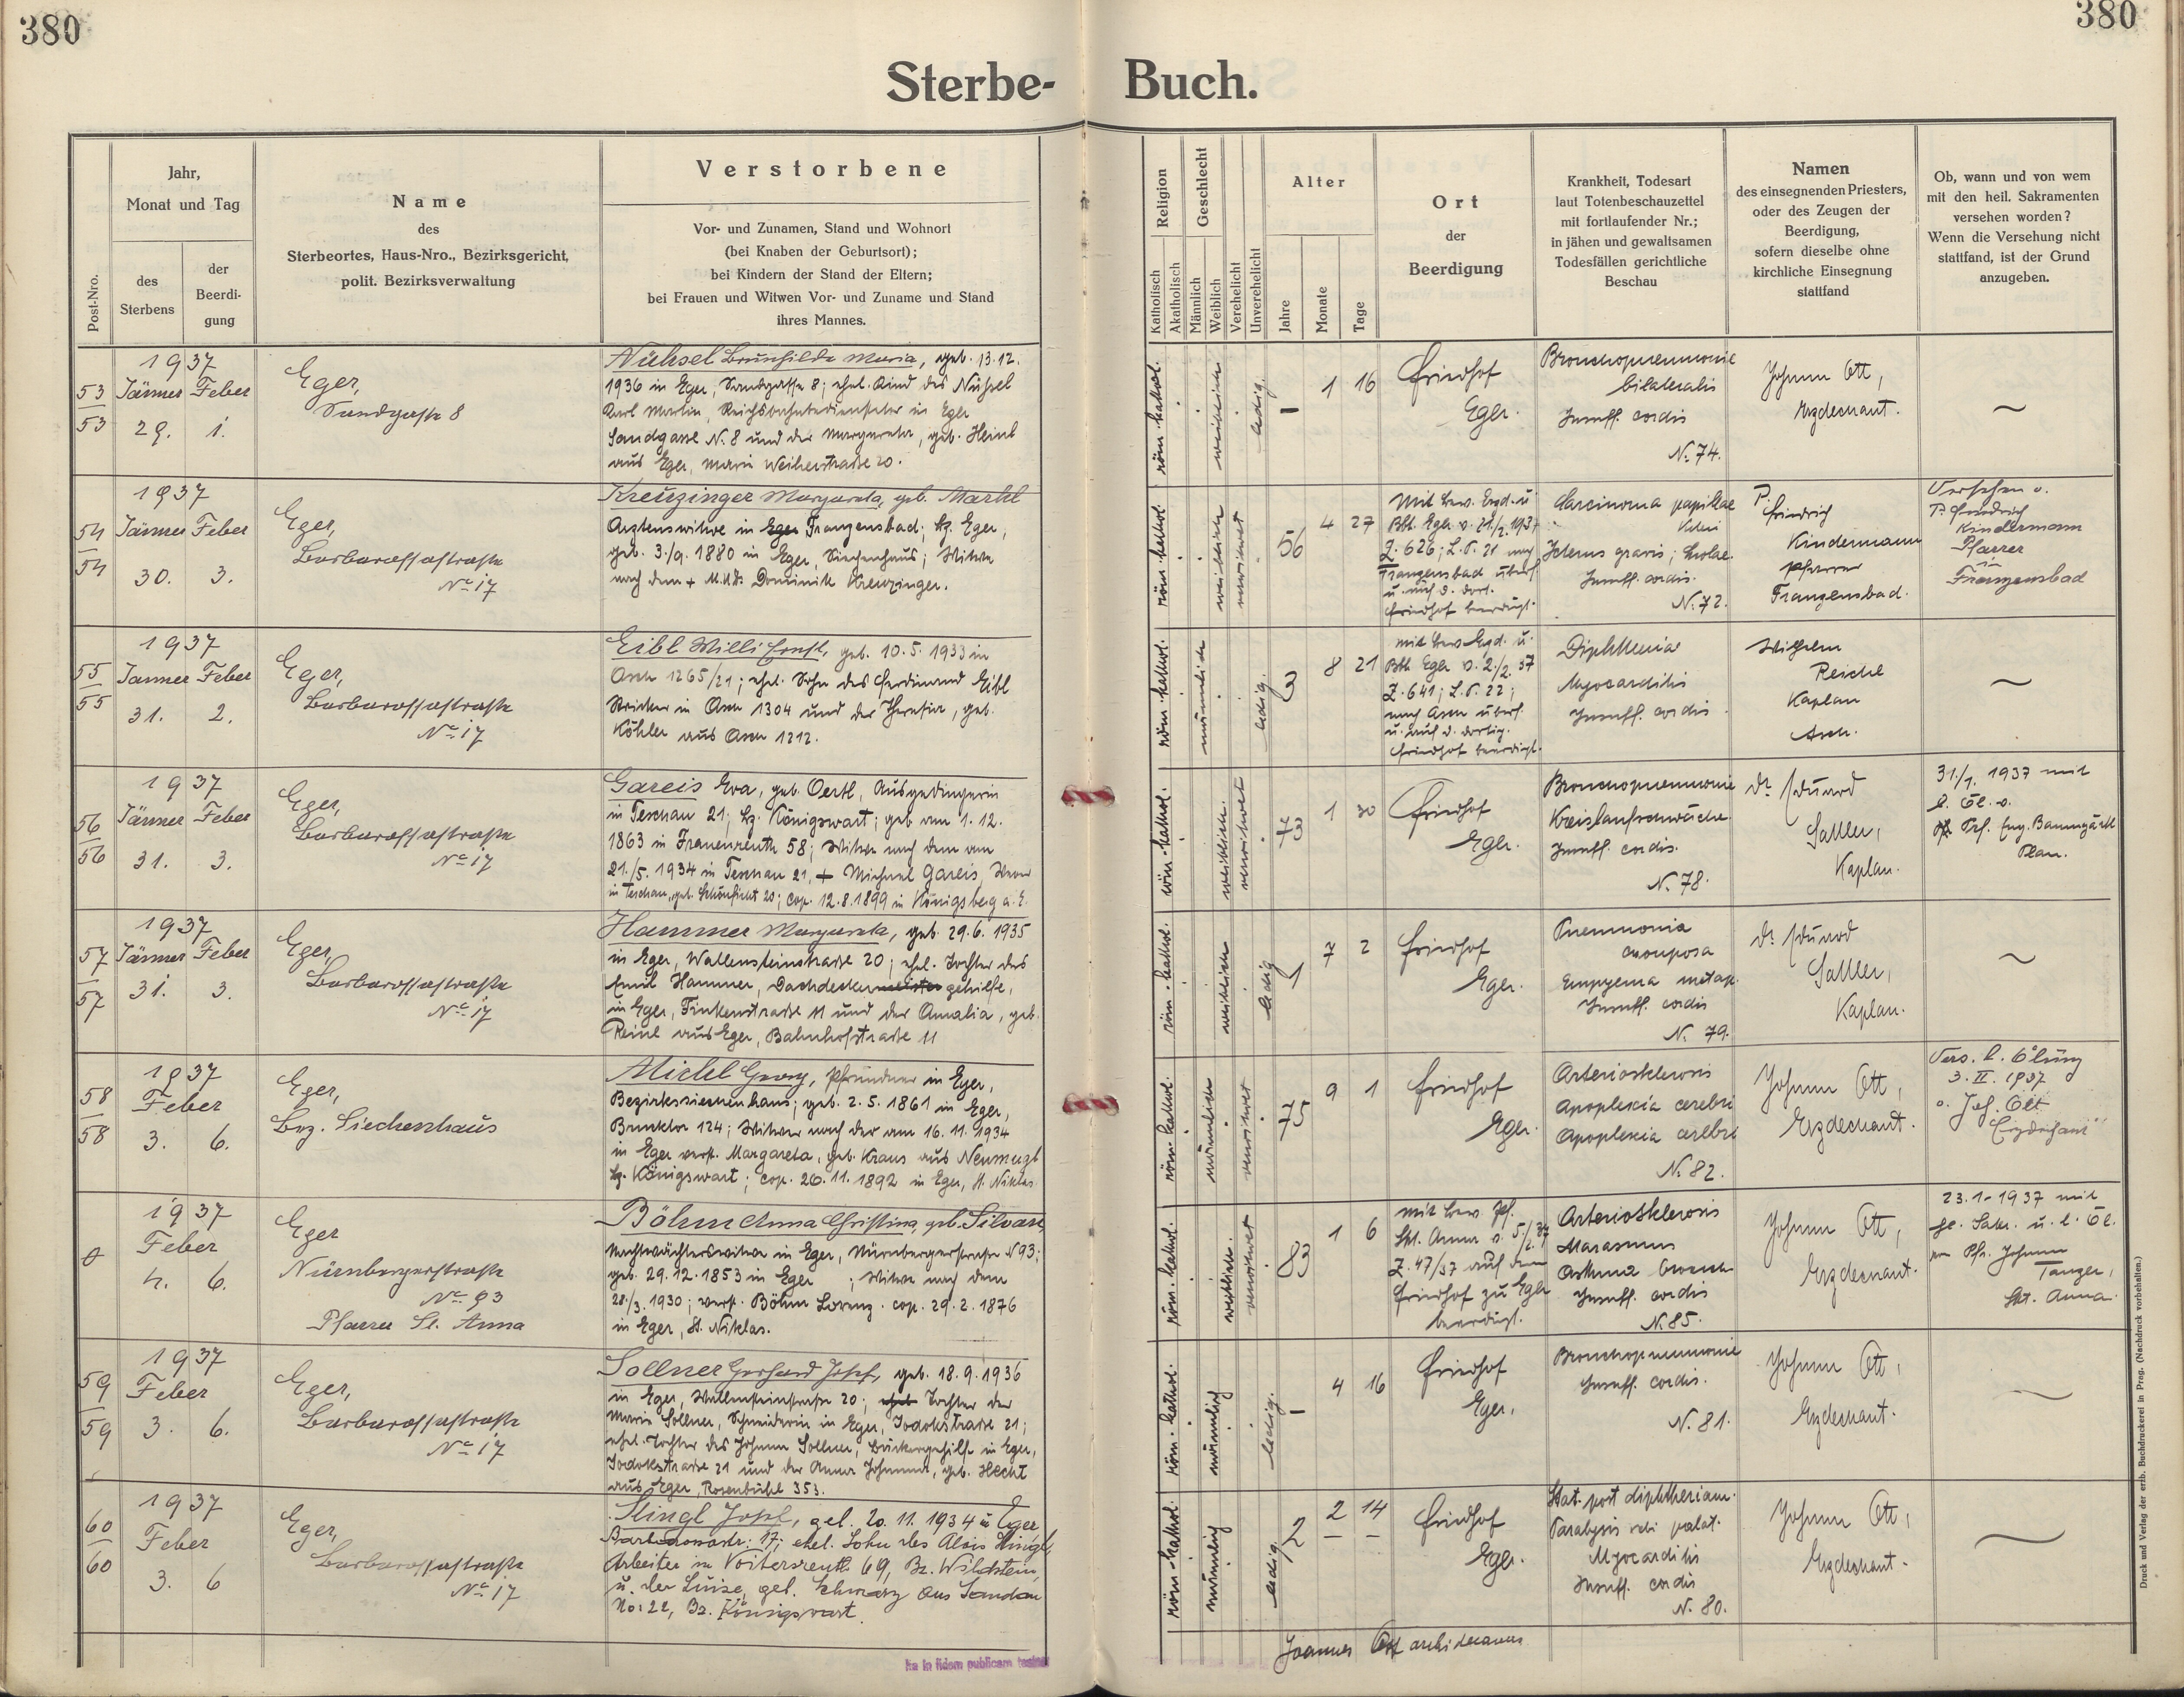 380
380
Sterbe- Buch.
Post-Nro.
Jahr,
Monat und Tag
des
Sterbens
der
Beerdi-
gung
Name
des
Sterbeortes, Haus-Nro., Bezirksgericht,
polit. Bezirksverwaltung
Verstorbene
Vor- und Zunamen, Stand und Wohnort
(bei Knaben der Geburtsort);
bei Kindern der Stand der Eltern;
bei Frauen und Witwen Vor- und Zuname und Stand
ihres Mannes.
Religion
Katholisch
Akatholisch
Geschlecht
Männlich
Weiblich
Verehelicht
Unverehelicht
Alter
Jahre
Monate
Tage
Ort
der
Beerdigung
Krankheit, Todesart
laut Totenbeschauzettel
mit fortlaufender Nr.;
in jähen und gewaltsamen
Todesfällen gerichtliche
Beschau
Namen
des einsegnenden Priesters,
oder des Zeugen der
Beerdigung,
sofern dieselbe ohne
kirchliche Einsegnung
stattfand
Ob, wann und von wem
mit den heil. Sakramenten
versehen worden?
Wenn die Versehung nicht
stattfand, ist der Grund
anzugeben.
53
53
1937
Jänner Feber
29. 1.
Eger,
Sandgasse 8
Maria, geb. 13.12.
1936 in Eger, Sandgasse 8; ehel. Kind des
Karl Martin, in Eger
Sandgasse N. 8 und der Margareta, geb. Heinl
aus Eger, 20.
röm. kathol.
weiblich
ledig.
– 1 16
Friedhof
Eger.
Bronchopneumonie
bilateralis
Insuff. cordis
N. 74.
Johann Ott,
Erzdechant.
~
54
54
1937
Jänner Feber
30. 3.
Eger,
Barbarossastraße
No 17
Kreuzinger Margareta, geb. Markl
Arztenswitwe in Eger Franzensbad; Bz. Eger,
geb. 3./9. 1880 in Eger, Siechenhaus; Witwe
nach dem + M.U.Dr. Dominik Kreuzinger.
röm. kathol.
weiblich
verwitwet
56 4 27
Mit Bew. Erzd. u.
Bht. Eger v. 21/2. 1937
Z. 626; L.P. 21 nach
Franzensbad überf.
u. auf d. dort.
Friedhof beerdigt.
Carcinoma papillae
Vateri
Icterus gravis;
Insuff. cordis.
N. 72.
P.
Friedrich
Kindermann
Pfarrer
Franzensbad.
Versehen v.
P. Friedrich
Kindermann
Pfarrer
in
Franzensbad
55
55
1937
Jänner Feber
31. 2.
Eger,
Barbarossastraße
No 17
Eibl Willi Ernst, geb. 10.5.1933 in
Asch 1265/21; ehel. Sohn des Ferdinand Eibl
Stricker in Asch 1304 und der Theresia, geb.
Köhler aus Asch 1212.
röm. kathol.
männlich
ledig.
3 8 21
mit Bew. Erzd. u.
Bht. Eger v. 2./2. 37
Z. 641; L.P. 22;
nach Asch überf.
u. auf d. dortig.
Friedhof beerdigt.
Diphtheriae
Myocarditis
Insuff. cordis
Wilhelm
Reichl
Kaplan
Asch.
~
56
56
1937
Jänner Feber
31. 3.
Eger,
Barbarossastraße
No 17
Gareis Eva, geb. Oertl, Ausgedingerin
in Teschau 21; Bz. Königswart; geb. am 1. 12.
1863 in Frauenreuth 58; Witwe nach dem am
21./5. 1934 in Teschau 21, + Michael Gareis, Weber
in Teschau, geb. Schönficht 20; cop. 12.8.1899 in Königsberg a. E.
röm. kathol.
weiblich.
verwitwet
73 1 30
Friedhof
Eger.
Bronchopneumonie
Kreislaufschwäche
Insuff. cordis.
N. 78.
Dr. Eduard
Sattler,
Kaplan.
31./1. 1937 mit
h. Öl. v.
Prf. Eug. Baumgärtl
Plan.
57
57
1937
Jänner Feber
31. 3.
Eger,
Barbarossastraße
No 17
Hammer Margareta, geb. 29.6. 1935
in Eger, Wallensteinstraße 20; ehel. Tochter des
Emil Hammer, Dachdeckermeister gehilfe,
in Eger, Finkenstraße 11 und der Amalia, geb.
Reinl aus Eger, Bahnhofstraße 11
röm. kathol.
weiblich
ledig
1 7 2
Friedhof
Eger.
Pneumonia
crouposa
Empyema metap.
Insuff. cordis
N. 79.
Dr. Eduard
Sattler,
Kaplan.
~
58
58
1937
Feber
3. 6.
Eger,
Bez. Siechenhaus
Michl Georg, Pfründner in Eger,
Bezirkssiechenhaus; geb. 2.5. 1861 in Eger,
Bruktor 124; Witwer nach der am 16. 11. 1934
in Eger verst. Margareta, geb. Kraus aus
Bz. Königswart; cop. 20.11.1892 in Eger, St. Niklas
röm. kathol.
männlich
verwitwet
75 9 1
Friedhof
Eger.
Arteriosklerosis
Apoplexia cerebri
Apoplexia cerebri
N. 82.
Johann Ott,
Erzdechant.
Vers. h. Ölung
3. II. 1937
v. Joh. Ott
Erzdechant
0
1937
Feber
4. 6.
Eger
Nürnbergerstraße
No 93
Pfarre St. Anna
Böhm Anna Christina, geb.
Nachtwächterswitwe in Eger, Nürnbergerstraße N 93;
geb. 29.12.1853 in Eger ; Witwe nach dem
28./3. 1930; verst. Böhm Lorenz. cop. 29.2.1876
in Eger, St. Niklas.
röm. kathol.
weiblich.
verwitwet
83 1 6
mit Bew. Pf.
Skt. Anna v. 5./2. 37
Z. 47/37 auf dem
Friedhof zu Eger
beerdigt.
Arteriosklerosis
Marasmus
Asthma bronch.
Insuff. cordis
N. 85.
Johann Ott,
Erzdechant.
23.1.1937 mit
hl. Sakr. u. h. Öl.
von Pfr. Johann
Tanzer,
Skt. Anna.
59
59
1937
Feber
3. 6.
Eger,
Barbarossastraße
No 17
Sollner Gerhard Josef, geb. 18.9.1936
in Eger, Wallensteinstraße 20; ehel. Tochter der
Maria Sollner, Schneiderin in Eger, Jodokstraße 21;
ehel. Tochter des Johann Sollner, Bäckergehilfe in Eger,
Jodokstraße 21 und der Anna Johanna, geb. Hecht
aus Eger, Rosenbühl 353.
röm. kathol.
männlich
ledig.
– 4 16
Friedhof
Eger.
Bronchopneumonie
Insuff. cordis.
N. 81.
Johann Ott,
Erzdechant.
~
60
60
1937
Feber
3. 6
Eger,
Barbarossastraße
No 17
Stingl Josef, geb. 20.11.1934 in Eger
17; ehel. Sohn des Alois Stingl,
Arbeiter in Voitersreuth 69, Bz. Wildstein,
u. der Luise, geb. Schwarz aus Sandau
No: 22, Bz. Königswart.
röm. kathol.
männlich
ledig.
2 2 14
Friedhof
Eger.
Stat. post diphtheriam.
Paralysis veli palat.
Myocarditis
Insuff. cordis
N. 80.
Johann Ott,
Erzdechant.
~
Joannes Ott archidecanus
Ita in fidem publicam testor
Druck und Verlag der erzb. Buchdruckerei in Prag. (Nachdruck vorbehalten.)